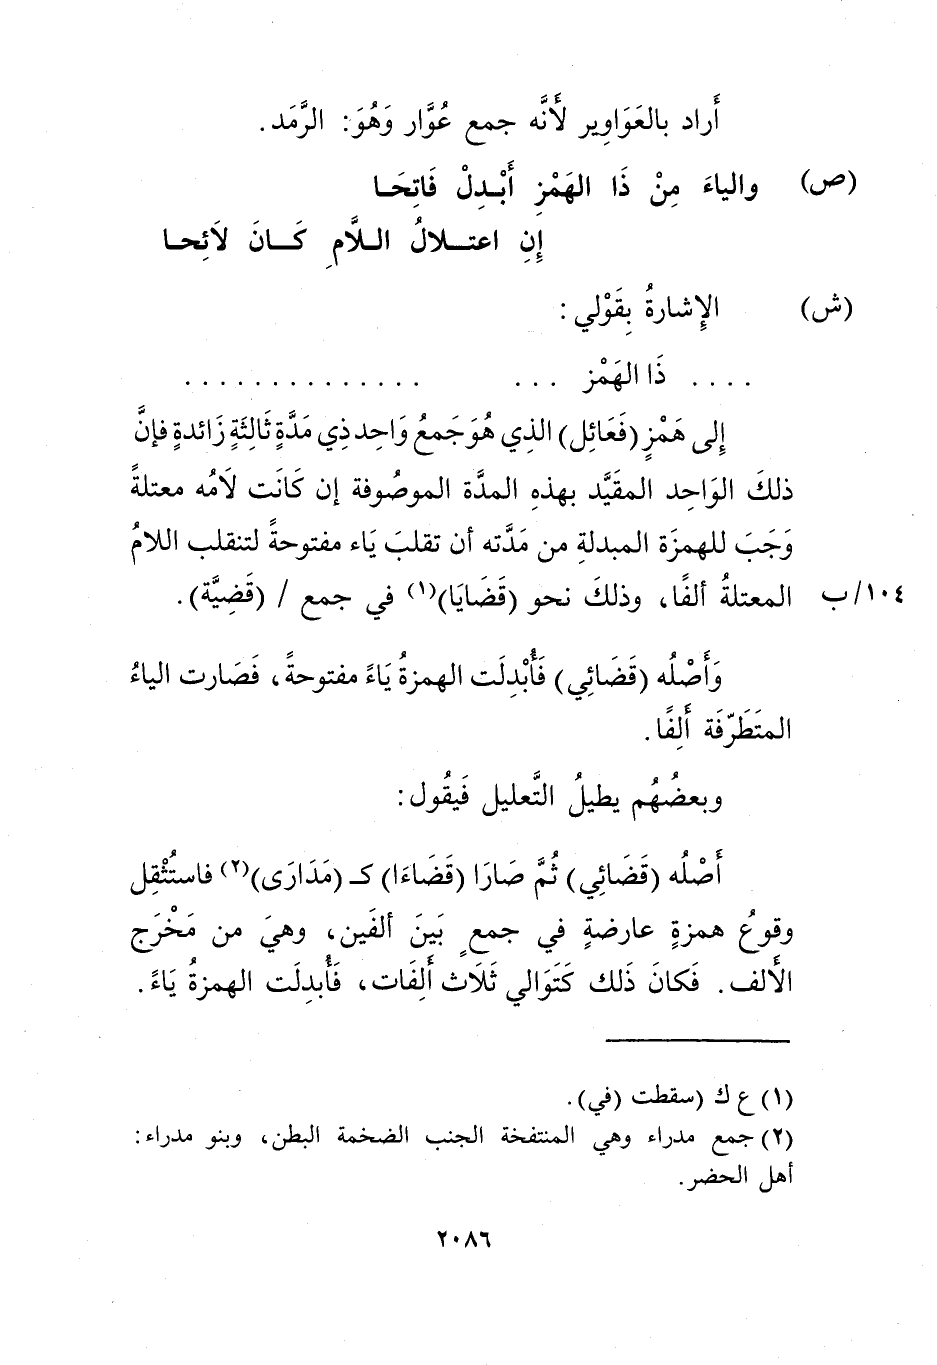 أَراد بالعَوَاوِير لأَنَّه جمع عُوَّار وَهُوَ: الرَّمَد.
(ص) والياءَ مِنْ ذَا الهَمْزِ أَبْدِلْ فَاتِحَا
إِنِ اعتلالُ اللَّامِ كَانَ لَائِحا
(ش) الإِشارةُ بِقَوْلي:
.... ذَا الهَمْزِ ... ..............
إِلى هَمْزِ (فَعَائِل) الذِي هُوَ جَمعُ وَاحِد ذِي مَدَّةٍ ثَالِثَةٍ زَائدةٍ فإِنَّ
ذلكَ الوَاحِد المقَيَّد بهذهِ المدَّة الموصُوفة إن كَانَت لَامُه معتلةً
وَجَبَ للهمزَة المبدلةِ من مَدَّته أن تقلبَ يَاء مفتوحةً لتنقلب اللامُ
المعتلةُ ألفًا، وذلكَ نحو (قَضَايَا)(١) في جمع / (قَضِيَّة). ١٠٤/ب
وَأَصْلُه (قَضَائِي) فَأُبْدِلَت الهمزةُ يَاءً مفتوحةً، فَصَارت الياءُ
المتَطَرِّفَة أَلِفًا.
وبعضُهُم يطيلُ التَّعليل فَيقُول:
أَصْلُه (قَضَائِي) ثُمَّ صَارَا (قَضَاءَا) كـ (مَدَارَى)(٢) فاستُثْقِل
وقوعُ همزةٍ عارضةٍ في جمعٍ بَينَ ألفَين، وهيَ من مَخْرَج
الأَلف. فَكانَ ذَلك كَتَوَالي ثَلَاث أَلِفَات، فَأُبدِلَت الهمزةُ يَاءً.
(١) ع ك (سقطت (في).
(٢) جمع مدراء وهي المنتفخة الجنب الضخمة البطن، وبنو مدراء:
أهل الحضر.
٢٠٨٦